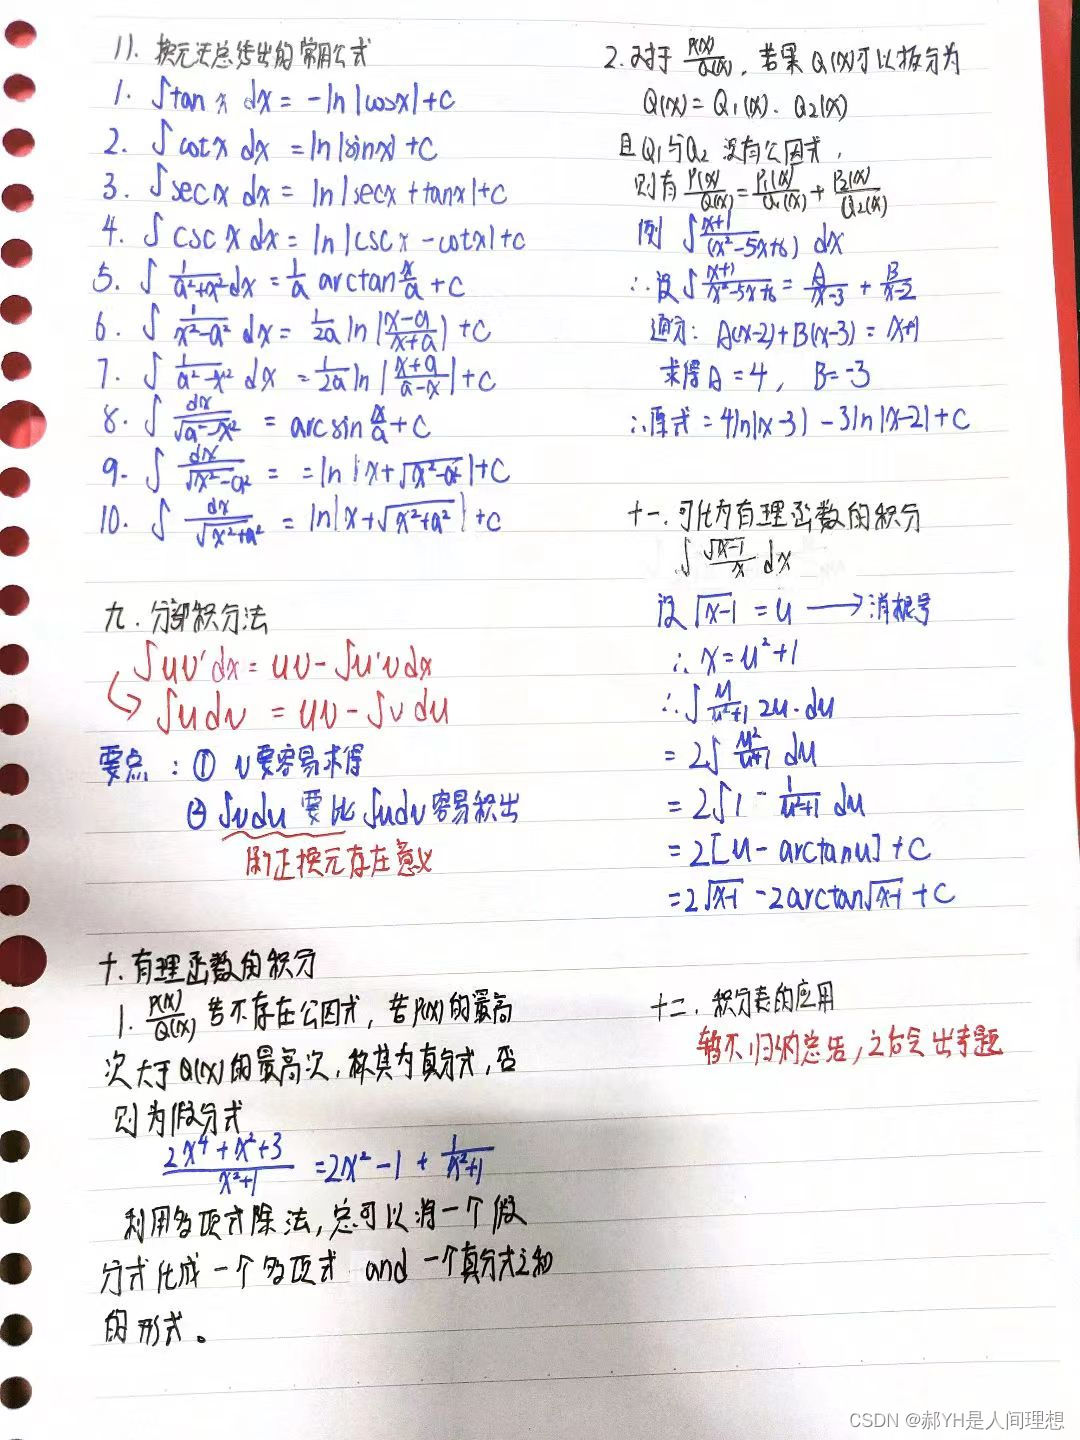 11. 换元法总结出的常用公式
1. ∫tan x dx = -ln|cosx|+C
2. ∫cotx dx = ln|sinx|+C
3. ∫secx dx = ln|secx+tanx|+C
4. ∫cscx dx = ln|cscx-cotx|+C
5. ∫ 1/(a²+x²) dx = 1/a arctan x/a + C
6. ∫ 1/(x²-a²) dx = 1/2a ln|(x-a)/(x+a)|+C
7. ∫ 1/(a²-x²) dx = 1/2a ln|(x+a)/(a-x)|+C
8. ∫ dx/√(a²-x²) = arcsin x/a + C
9. ∫ dx/√(x²-a²) = = ln|x+√(x²-a²)|+C
10. ∫ dx/√(x²+a²) = ln|x+√(x²+a²)|+C
九. 分部积分法
∫uv'dx = uv-∫u'vdx
∫udv = uv-∫vdu
要点：① v要容易求得
② ∫vdu 要比 ∫udv容易积出
十. 有理函数的积分
1. P(x)/Q(x) 若不存在公因式，若P(x)的最高
次大于Q(x)的最高次，称其为真分式，否
则为假分式
(2x⁴+x²+3)/(x²+1) = 2x²-1+ 1/(x²+1)
利用多项式除法，总可以将一个假
分式化成一个多项式 and 一个真分式之和
的形式。
2. 对于 P(x)/Q(x)，若果Q(x)可以拆分为
Q(x) = Q₁(x)·Q₂(x)
且Q₁与Q₂没有公因式，
则有 P(x)/Q(x) = P₁(x)/Q₁(x) + P₂(x)/Q₂(x)
例 ∫ (x+1)/(x²-5x+6) dx
∴设∫ (x+1)/(x²-5x+6) = A/(x-3) + B/(x-2)
通分：A(x-2)+B(x-3) = x+1
求得A=4，B=-3
∴原式=4ln|x-3|-3ln|x-2|+C
十一. 可化为有理函数的积分
∫ √(x-1)/x dx
设 √(x-1) = u → 消根号
∴ x=u²+1
∴∫ u/(u²+1) 2u·du
= 2∫ u²/(u²+1) du
= 2∫1- 1/(u²+1) du
= 2[u-arctanu]+C
= 2√(x-1) -2arctan√(x-1)+C
十二. 积分表的应用
暂不归纳总结，之后会出专题
CSDN @郝YH是人间理想